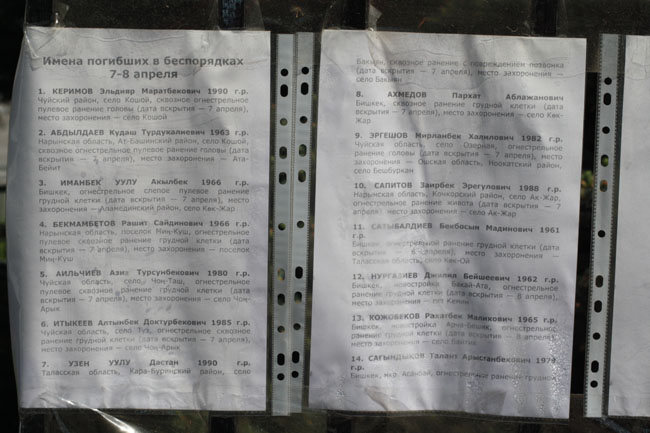 Имена погибших в беспорядках
7-8 апреля
1. КЕРИМОВ Эльдияр Маратбекович 1990 г.р.
Чуйский район, село Кошой, сквозное огнестрельное
пулевое ранение головы (дата вскрытия — 7 апреля),
место захоронения — село Кошой
2. АБДЫЛДАЕВ Кудаш Турдукалиевич 1963 г.р.
Нарынская область, Ат-Башинский район, село Кошой,
сквозное огнестрельное пулевое ранение головы (дата
вскрытия — 7 апреля), место захоронения — Ата-
Бейит
3. ИМАНБЕК УУЛУ Акылбек 1966 г.р.
Бишкек, огнестрельное слепое пулевое ранение
грудной клетки (дата вскрытия — 7 апреля), место
захоронения — Аламидинский район, село Кок-Жар
4. БЕКМАМБЕТОВ Рашит Сайдинович 1966 г.р.
Нарынская область, поселок Мин-Куш, огнестрельное
пулевое сквозное ранение грудной клетки (дата
вскрытия — 7 апреля), место захоронения — поселок
Мин-Куш
5. АИЛЬЧИЕВ Азиз Турсунбекович 1980 г.р.
Чуйская область, село Чон-Таш, огнестрельное
пулевое сквозное ранение грудной клетки (дата
вскрытия — 7 апреля), место захоронения — село Чон-
Арык
6. ИТЫКЕЕВ Алтынбек Доктурбекович 1985 г.р.
Чуйская область, село Туз, огнестрельное сквозное
ранение грудной клетки (дата вскрытия — 7 апреля),
место захоронения — село Чон-Арык
7. УЗЕН УУЛУ Дастан 1990 г.р.
Таласская область, Кара-Буринский район, село
Бакыян, сквозное ранение с повреждением позвонка
(дата вскрытия — 7 апреля), место захоронения —
село Бакыян
8. АХМЕДОВ Пархат Аблажанович
Бишкек, сквозное ранение грудной клетки (дата
вскрытия — 7 апреля), место захоронения — село Кок-
Жар
9. ЭРГЕШОВ Мирланбек Халилович 1982 г.р.
Чуйская область, село Озерная, огнестрельное
ранение головы (дата вскрытия — 7 апреля), место
захоронения — Ошская область, Ноокатский район,
село Бешбуркан
10. САПИТОВ Заирбек Эрегулович 1988 г.р.
Нарынская область, Кочкорский район, село Ак-Жар,
огнестрельное ранение живота (дата вскрытия — 7
апреля), место захоронения — село Ак-Жар
11. САТЫБАЛДИЕВ Бекбосын Мадинович 1961
г.р.
Бишкек, огнестрельное ранение грудной клетки (дата
вскрытия — 8 апреля), место захоронения —
Таласская область, село Кок-Ой
12. НУРГАЗИЕВ Джалил Бейшеевич 1962 г.р.
Бишкек, новостройка Бакай-Ата, огнестрельное
ранение грудной клетки (дата вскрытия — 8 апреля),
место захоронения — пгт Кемин
13. КОЖОБЕКОВ Рахатбек Маликович 1965 г.р.
Бишкек, новостройка Арча-Бешик, огнестрельное
ранение грудной клетки (дата вскрытия — 8 апреля),
место захоронения — село
14. САГЫНДЫКОВ Талант Арыстанбекович
г.р.
Бишкек, мкр. Асанбай, огнестрельное ранение грудной